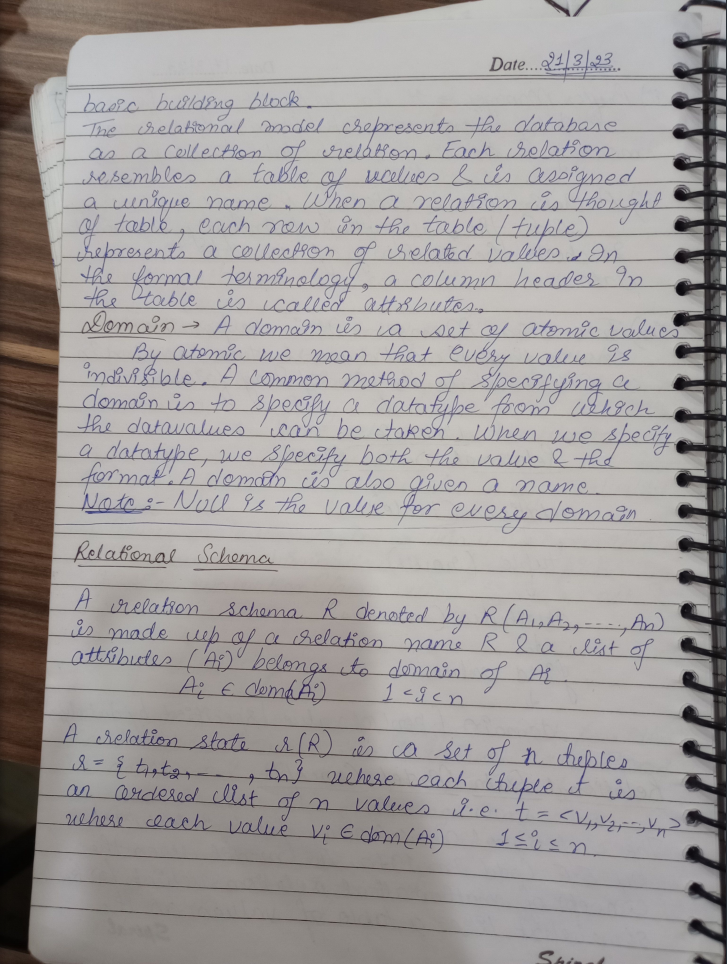 Date....21/3/23..
basic building block.
The relational model represents the database
as a collection of relation. Each relation
resembles a table of values & is assigned
a unique name. When a relation is thought
of table, each row in the table (tuple)
represents a collection of related values. In
the formal terminology, a column header in
the table is called attributes.
Domain → A domain is a set of atomic values
By atomic we mean that every value is
indivisible. A common method of specifying a
domain is to specify a datatype from which
the datavalues can be taken. When we specify
a datatype, we specify both the value & the
format. A domain is also given a name.
Note :- Null is the value for every domain.
Relational Schema
A relation schema R denoted by R(A₁,A₂,-----,An)
is made up of a relation name R & a list of
attributes (Ai) belongs to domain of Ai.
Ai ∈ dom(Ai) 1<i<n
A relation state r(R) is a set of n tuples
r = {t₁,t₂,-----, tn} where each tuple t is
an ordered list of n values i.e. t = <v₁,v₂,--,vn>
where each value vi ∈ dom(Ai) 1≤i≤n.